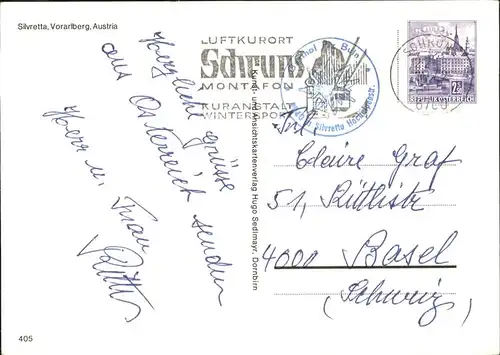 Silvretta, Vorarlberg, Austria
LUFTKURORT
Schruns
MONTAFON
KURANSTALT
WINTERSPORT
SCHRUNS
REPUBLIK ÖSTERREICH
Herzliche Grüsse
aus Österreich senden
Herr u. Frau
Ritter
Kunst- und Ansichtskartenverlag Hugo Sedlmayr, Dornbirn
Frl.
Claire Graf
51, Rütlistr.
4000 Basel
(Schweiz)
405